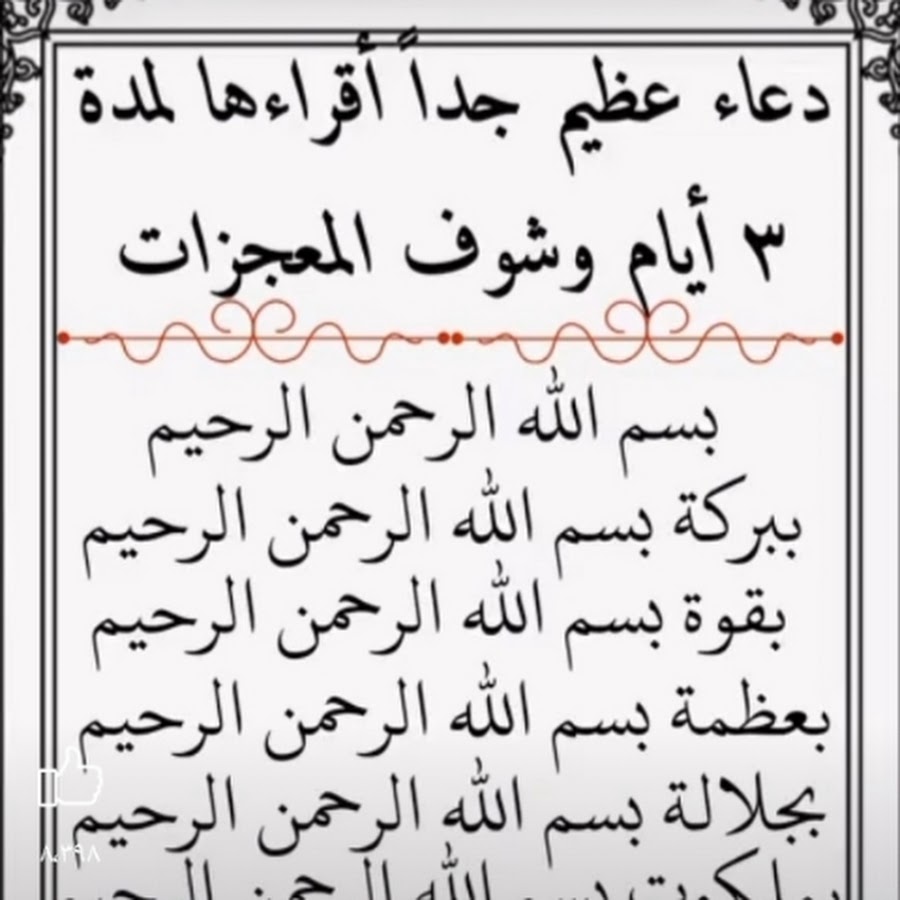 دعاء عظيم جداً أقراءها لمدة
٣ أيام وشوف المعجزات
بسم الله الرحمن الرحيم
ببركة بسم الله الرحمن الرحيم
بقوة بسم الله الرحمن الرحيم
بعظمة بسم الله الرحمن الرحيم
بجلالة بسم الله الرحمن الرحيم
بملكوت بسم الله الرحمن الرحيم
٨،٢٩٨